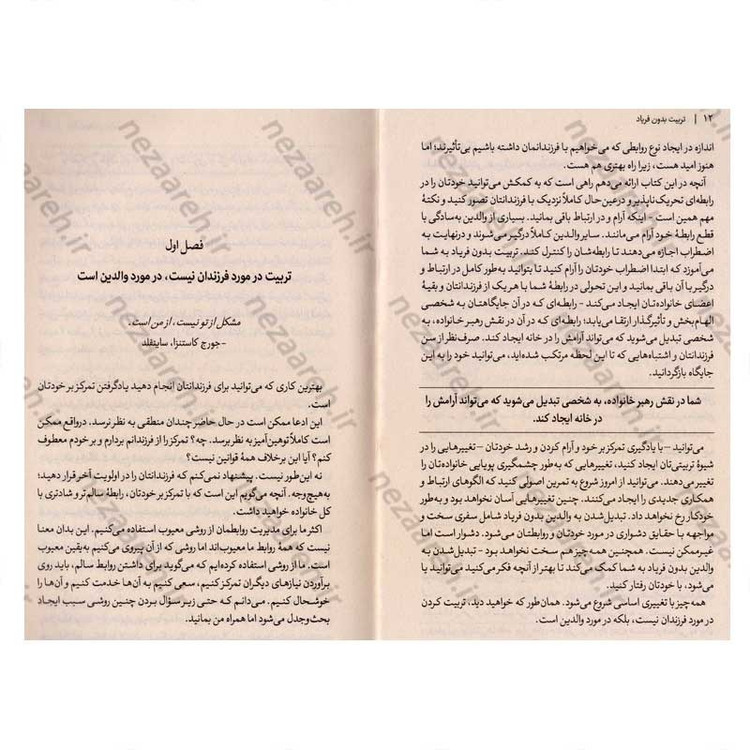 ۱۲ | تربیت بدون فریاد
اندازه در ایجاد نوع روابطی که می‌خواهیم با فرزندانمان داشته باشیم بی‌تأثیرند؛ اما
هنوز امید هست، زیرا راه بهتری هم هست.
آنچه در این کتاب ارائه می‌دهم راهی است که به کمکش می‌توانید خودتان را در
رابطه‌ای تحریک‌ناپذیر و درعین‌حال کاملاً نزدیک با فرزندانتان تصور کنید و نکتهٔ
مهم همین است - اینکه آرام و در ارتباط باقی بمانید. بسیاری از والدین به‌سادگی با
قطع رابطهٔ خود آرام می‌مانند. سایر والدین کاملاً درگیر می‌شوند و درنهایت به
اضطراب اجازه می‌دهند تا رابطه‌شان را کنترل کند. تربیت بدون فریاد به شما
می‌آموزد که ابتدا اضطراب خودتان را آرام کنید تا بتوانید به‌طور کامل در ارتباط و
درگیر با آن باقی بمانید و این تحولی در رابطهٔ شما با هریک از فرزندانتان و بقیهٔ
اعضای خانواده‌تان ایجاد می‌کند - رابطه‌ای که در آن جایگاهتان به شخصی
الهام‌بخش و تأثیرگذار ارتقا می‌یابد؛ رابطه‌ای که در آن در نقش رهبر خانواده، به
شخصی تبدیل می‌شوید که می‌تواند آرامش را در خانه ایجاد کند. صرف‌نظر از سن
فرزندانتان و اشتباه‌هایی که تا این لحظه مرتکب شده‌اید، می‌توانید خود را به این
جایگاه بازگردانید.
شما در نقش رهبر خانواده، به شخصی تبدیل می‌شوید که می‌تواند آرامش را
در خانه ایجاد کند.
می‌توانید – با یادگیری تمرکز بر خود و آرام کردن و رشد خودتان – تغییرهایی را در
شیوهٔ تربیتی‌تان ایجاد کنید، تغییرهایی که به‌طور چشمگیری پویایی خانواده‌تان را
تغییر می‌دهند. می‌توانید از امروز شروع به تمرین اصولی کنید که الگوهای ارتباط و
همکاری جدیدی را ایجاد می‌کنند. چنین تغییرهایی آسان نخواهد بود و به‌طور
خودکار رخ نخواهد داد. تبدیل‌شدن به والدین بدون فریاد شامل سفری سخت و
مواجهه با حقایق دشواری در مورد خودتان و روابطتان می‌شود. دشوار است اما
غیرممکن نیست. همچنین همه‌چیز هم سخت نخواهد بود - تبدیل‌شدن به
والدین بدون فریاد به شما کمک می‌کند تا بهتر از آنچه فکر می‌کنید می‌توانید یا
می‌شود، با خودتان رفتار کنید.
همه‌چیز با تغییری اساسی شروع می‌شود. همان‌طور که خواهید دید، تربیت کردن
در مورد فرزندان نیست، بلکه در مورد والدین است.
فصل اول
تربیت در مورد فرزندان نیست، در مورد والدین است
مشکل از تو نیست، از من است.
-جورج کاستنزا، ساینفلد
بهترین کاری که می‌توانید برای فرزندانتان انجام دهید یادگرفتن تمرکز بر خودتان
است.
این ادعا ممکن است در حال حاضر چندان منطقی به نظر نرسد. درواقع ممکن
است کاملاً توهین‌آمیز به نظر برسد. چه؟ تمرکز را از فرزندانم بردارم و بر خودم معطوف
کنم؟ آیا این برخلاف همهٔ قوانین نیست؟
نه این‌طور نیست. پیشنهاد نمی‌کنم که فرزندانتان را در اولویت آخر قرار دهید؛
به‌هیچ‌وجه. آنچه می‌گویم این است که با تمرکز بر خودتان، رابطهٔ سالم‌تر و شادتری با
کل خانواده خواهید داشت.
اکثر ما برای مدیریت روابطمان از روشی معیوب استفاده می‌کنیم. این بدان معنا
نیست که همهٔ روابط ما معیوب‌اند اما روشی که از آن پیروی می‌کنیم به‌یقین معیوب
است. ما از روشی استفاده کرده‌ایم که می‌گوید برای داشتن روابط سالم، باید روی
برآوردن نیازهای دیگران تمرکز کنیم، سعی کنیم به آن‌ها خدمت کنیم و آن‌ها را
خوشحال کنیم. می‌دانم که حتی زیر سؤال بردن چنین روشی سبب ایجاد
بحث‌وجدل می‌شود اما همراه من بمانید.
nezaareh.ir